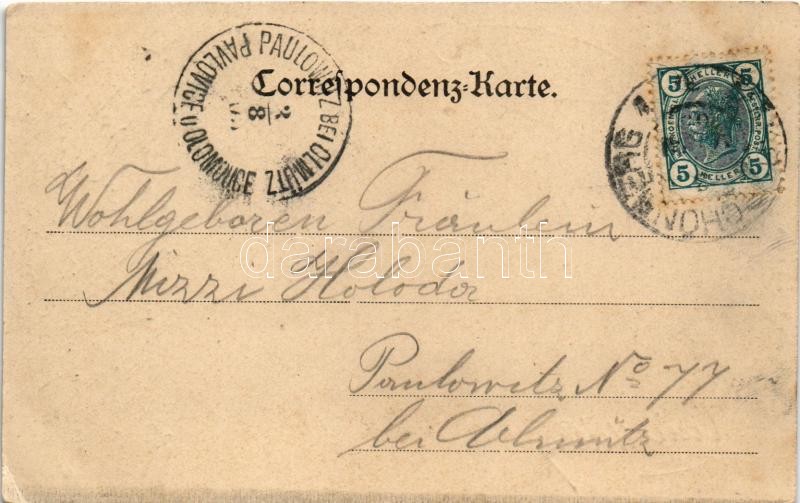 PAULOWITZ BEI OLMÜTZ
PAVLOVICE u OLOMOUCE
2
8
Correspondenz-Karte.
5 HELLER 5
5 HELLER 5
Wohlgeboren Fräulein
Mizzi Holodor
Paulowitz No 77
bei Olmütz
darabanth